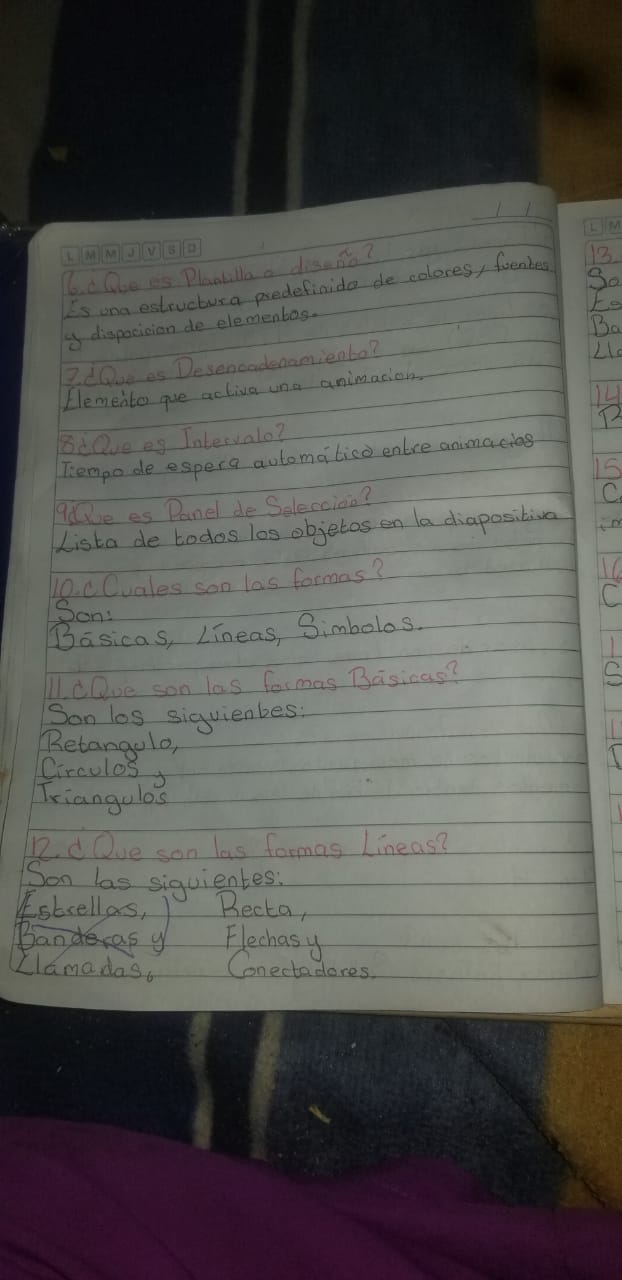 L M M J V S D
6.¿Que es Plantilla o diseño?
Es una estructura predefinida de colores, fuentes
y disposicion de elementos.
7.¿Que es Desencadenamiento?
Elemento que activa una animacion.
8.¿Que es Intervalo?
Tiempo de espera automático entre animacias
9.¿Que es Panel de Selección?
Lista de todos los objetos en la diapositiva
10.¿Cuales son las formas?
Son:
Básicas, Líneas, Simbolos.
11.¿Que son las formas Básicas?
Son los siguientes:
Retangulo,
Circulos y
Triangulos
12.¿Que son las formas Líneas?
Son las siguientes:
Estrellas, Recta,
Banderas y Flechas y
Llamadas. Conectadores.
L M
13.
So
Es
Ba
Lla
14
15
C
im
16
C
1
S
1